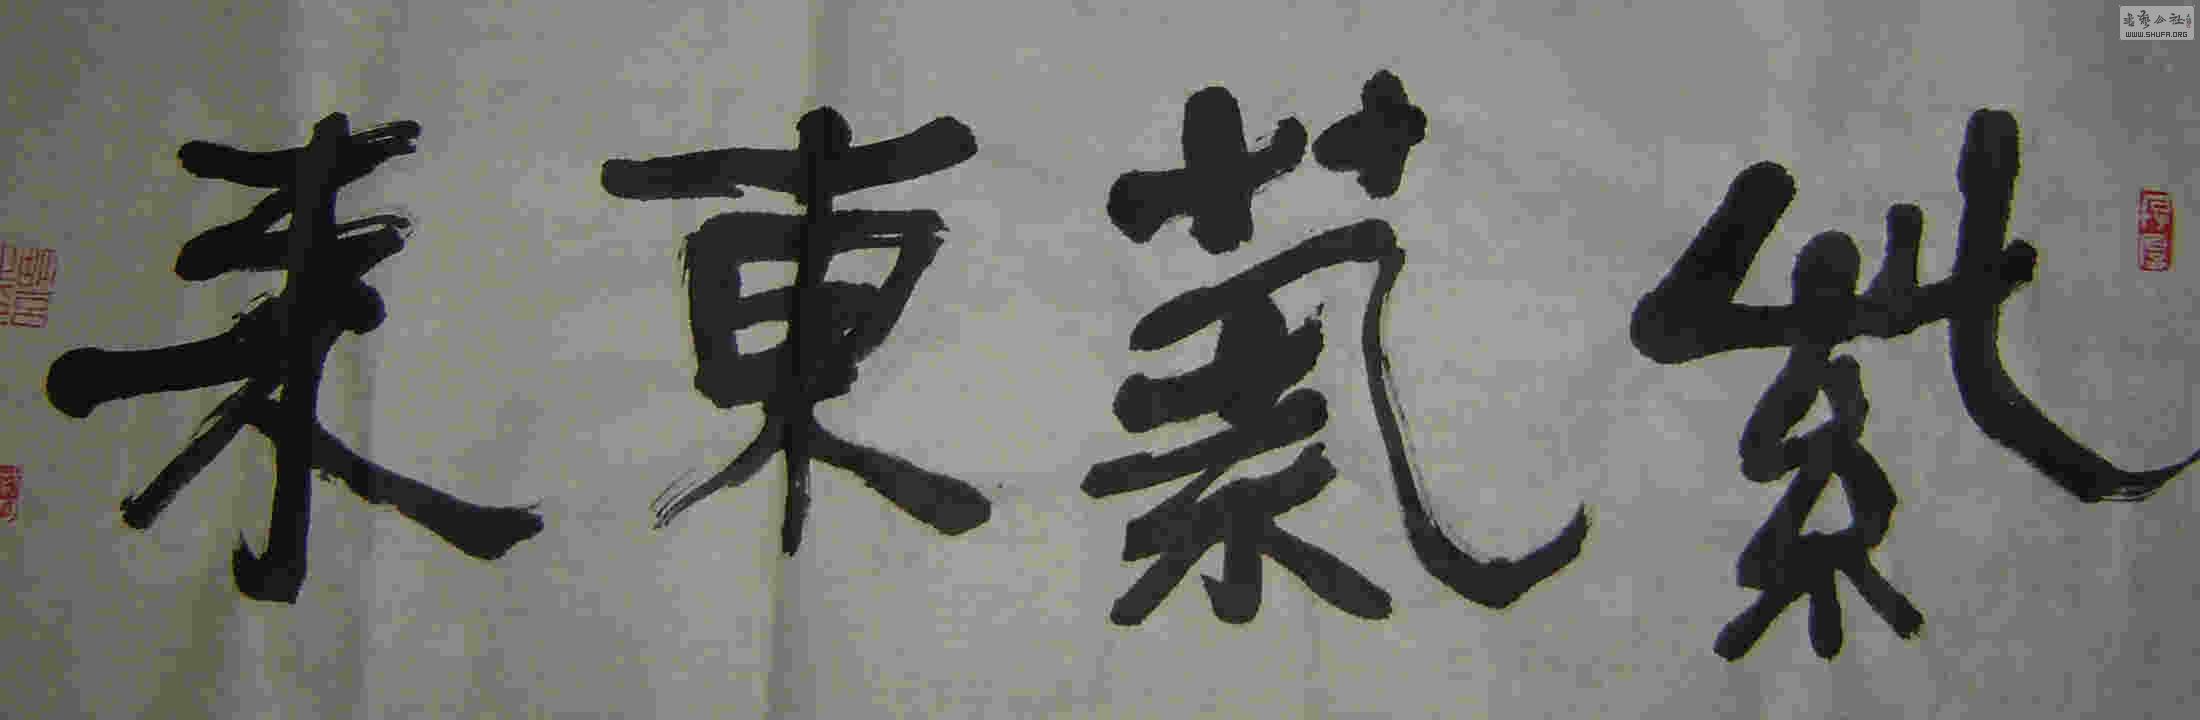 紫氣東来
书艺公社
WWW.SHUFA.ORG